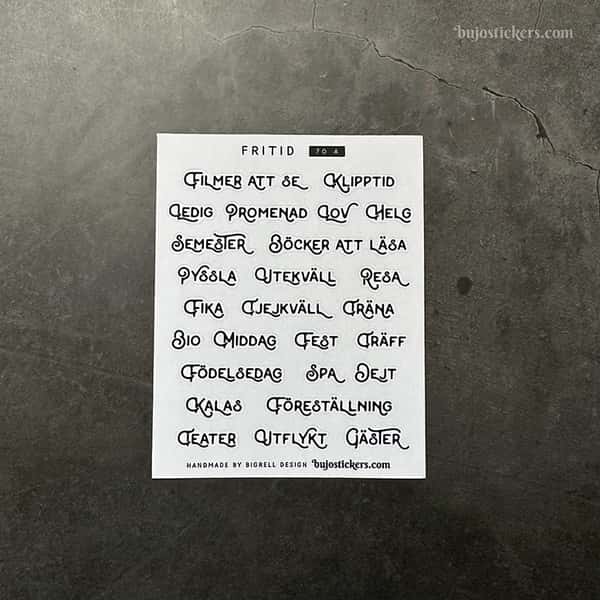 bujostickers.com
FRITID 70 A
FILMER ATT SE KLIPPTID
LEDIG PROMENAD LOV HELG
SEMESTER BÖCKER ATT LÄSA
PYSSLA UTEKVÄLL RESA
FIKA TJEJKVÄLL TRÄNA
BIO MIDDAG FEST TRÄFF
FÖDELSEDAG SPA DEJT
KALAS FÖRESTÄLLNING
TEATER UTFLYKT GÄSTER
HANDMADE BY BIGRELL DESIGN bujostickers.com